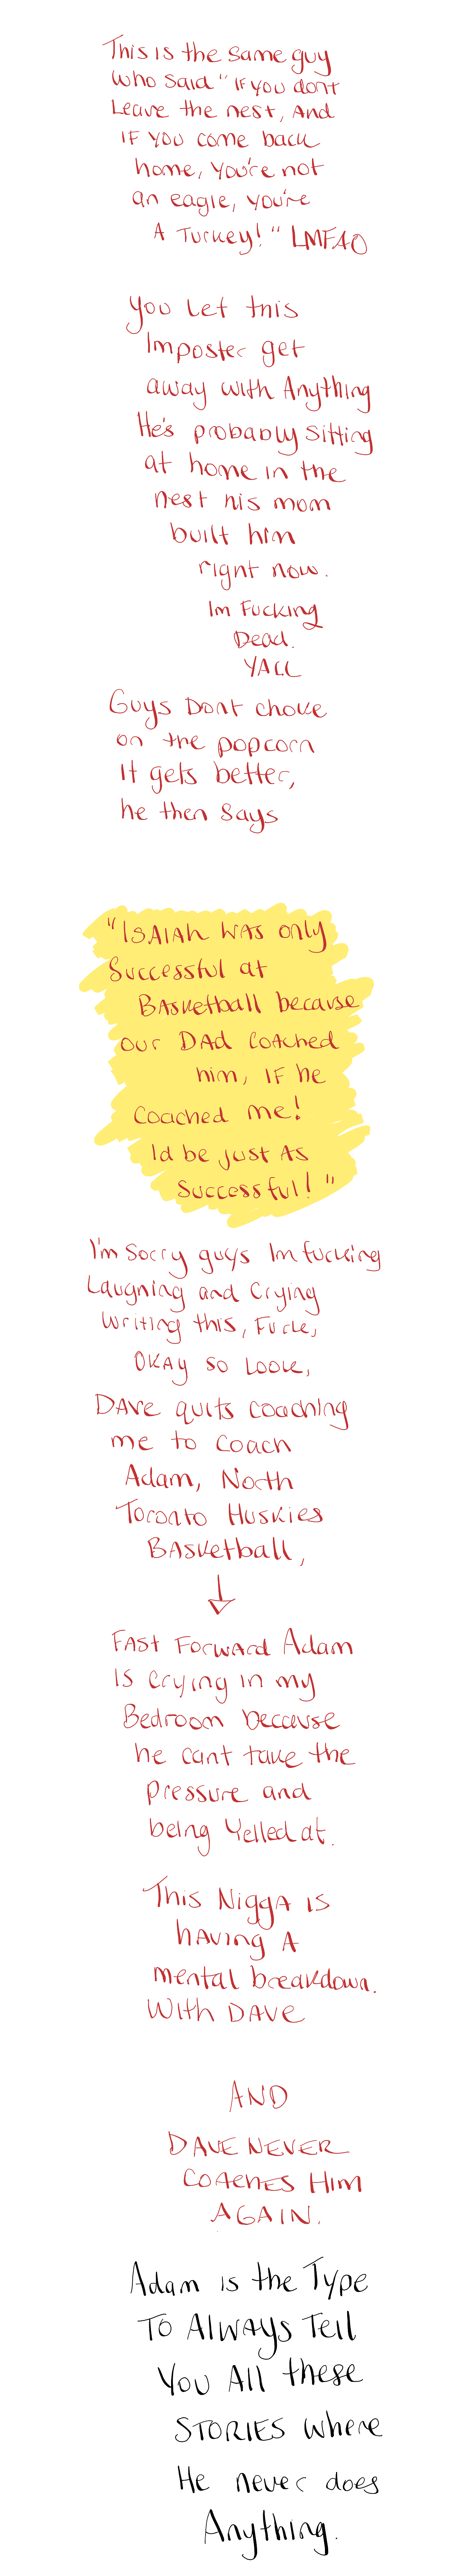 This is the same guy
who said "if you dont
Leave the nest, And
IF YOU come back
home, you're not
an eagle, you're
A Turkey!" LMFAO
You Let this
Imposter get
away with Anything
He's probably sitting
at home in the
nest his mom
built him
right now.
Im Fucking
Dead.
YALL
Guys Dont choke
on the popcorn
It gets better,
he then says
"ISAIAH WAS only
Successful at
BASketball because
our DAd coached
him, IF he
coached me!
Id be just AS
Successful!"
I'm sorry guys Im fucking
Laughing and Crying
writing this, Fuck,
OKAY so Look,
DAve quits coaching
me to coach
Adam, North
Toronto Huskies
BASketball,
FASt Forward Adam
is crying in my
Bedroom because
he cant take the
pressure and
being Yelled at.
This NiggA is
hAving A
mental breakdown.
With DAVE
AND
DAVE NEVER
COACHES HIM
AGAIN.
Adam is the Type
TO Always Tell
You All these
STORIES where
He never does
Anything.